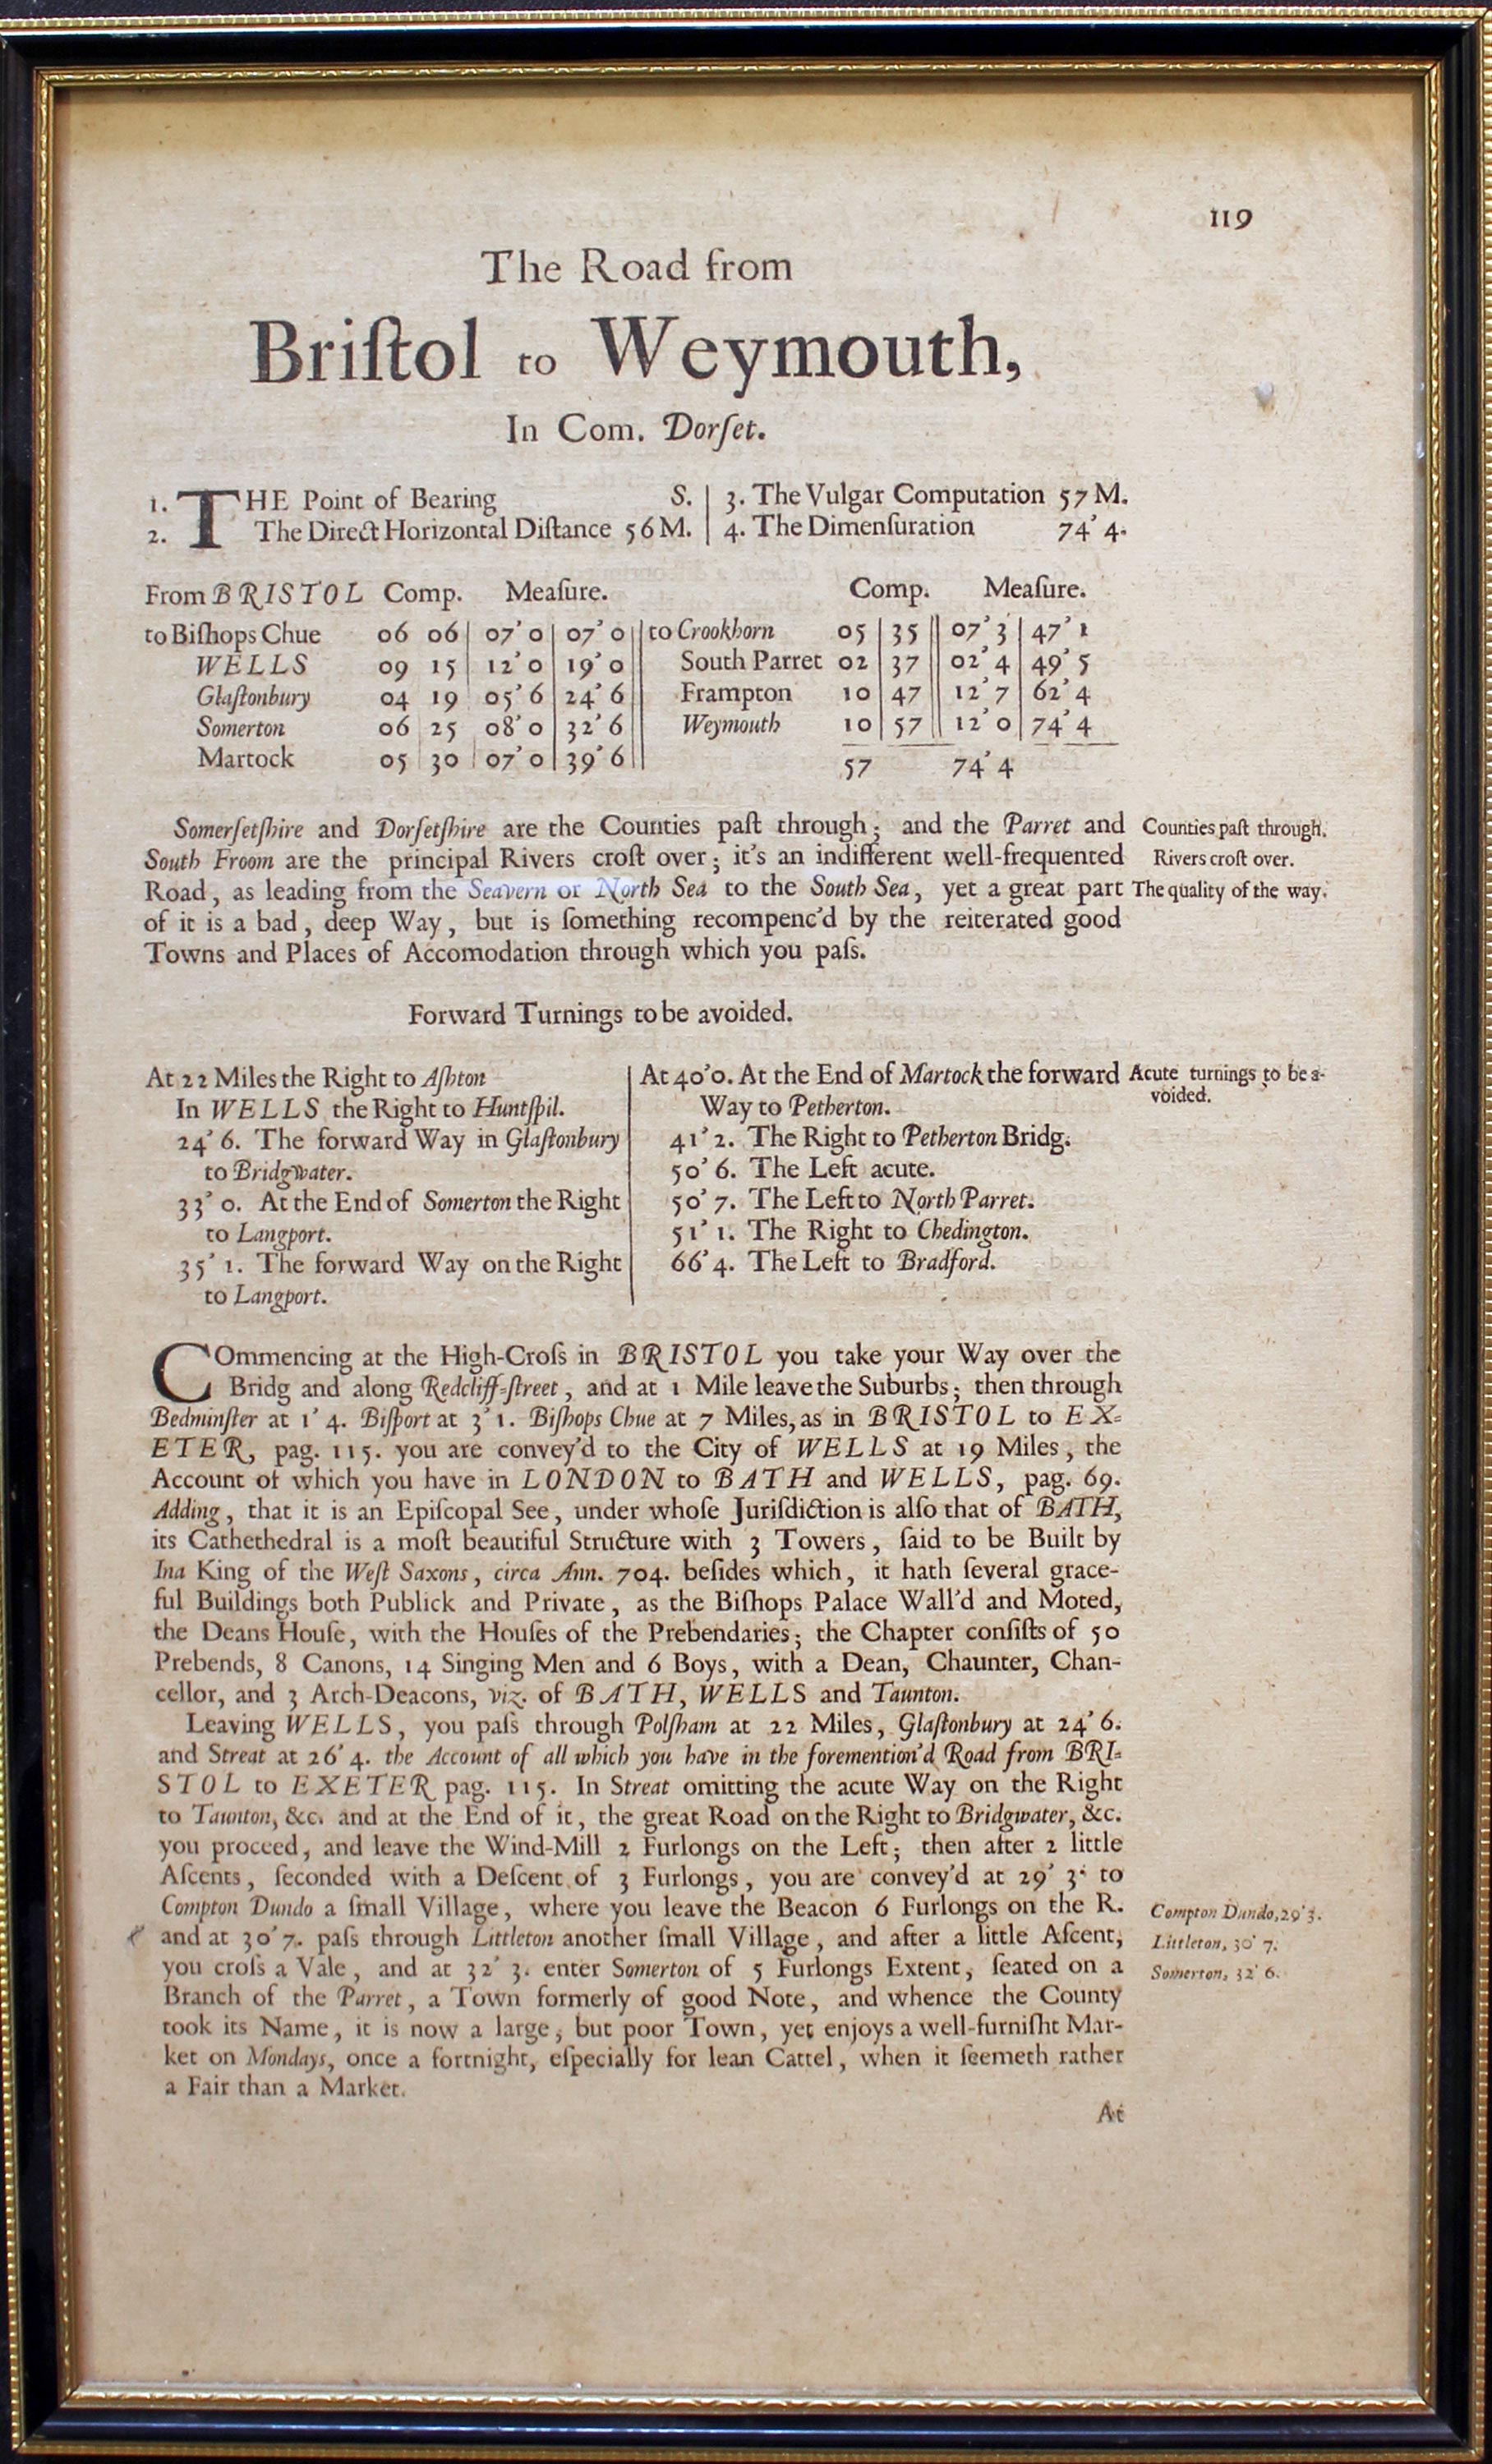 119
The Road from
Briſtol to Weymouth,
In Com. Dorſet.
1. THE Point of Bearing S. | 3. The Vulgar Computation 57 M.
2. The Direct Horizontal Diſtance 56 M. | 4. The Dimenſuration 74' 4.
From BRISTOL Comp. Meaſure. Comp. Meaſure.
to Biſhops Chue 06 06 | 07' 0 | 07' 0 || to Crookhorn 05 | 35 || 07' 3 | 47' 1
WELLS 09 15 | 12' 0 | 19' 0 || South Parret 02 | 37 || 02' 4 | 49' 5
Glaſtonbury 04 19 05' 6 | 24' 6 || Frampton 10 | 47 || 12' 7 | 62' 4
Somerton 06 25 08' 0 | 32' 6 || Weymouth 10 | 57 || 12' 0 | 74' 4
Martock 05 | 30 | 07' 0 | 39' 6 || 57 74' 4
Somerſetſhire and Dorſetſhire are the Counties paſt through; and the Parret and Counties paſt through.
South Froom are the principal Rivers croſt over; it's an indifferent well-frequented Rivers croſt over.
Road, as leading from the Seavern or North Sea to the South Sea, yet a great part The quality of the way.
of it is a bad, deep Way, but is ſomething recompenc'd by the reiterated good
Towns and Places of Accomodation through which you paſs.
Forward Turnings to be avoided.
At 22 Miles the Right to Aſhton
In WELLS the Right to Huntſpil.
24' 6. The forward Way in Glaſtonbury
to Bridgwater.
33' 0. At the End of Somerton the Right
to Langport.
35' 1. The forward Way on the Right
to Langport.
At 40'0. At the End of Martock the forward
Way to Petherton.
41' 2. The Right to Petherton Bridg.
50' 6. The Left acute.
50' 7. The Left to North Parret.
51' 1. The Right to Chedington.
66' 4. The Left to Bradford.
Acute turnings to be a-
voided.
COmmencing at the High-Croſs in BRISTOL you take your Way over the
Bridg and along Redcliff-ſtreet, and at 1 Mile leave the Suburbs; then through
Bedminſter at 1' 4. Biſport at 3' 1. Biſhops Chue at 7 Miles, as in BRISTOL to EX-
ETER, pag. 115. you are convey'd to the City of WELLS at 19 Miles, the
Account of which you have in LONDON to BATH and WELLS, pag. 69.
Adding, that it is an Epiſcopal See, under whoſe Juriſdiction is alſo that of BATH,
its Cathethedral is a moſt beautiful Structure with 3 Towers, ſaid to be Built by
Ina King of the Weſt Saxons, circa Ann. 704. beſides which, it hath ſeveral grace-
ful Buildings both Publick and Private, as the Biſhops Palace Wall'd and Moted,
the Deans Houſe, with the Houſes of the Prebendaries; the Chapter conſiſts of 50
Prebends, 8 Canons, 14 Singing Men and 6 Boys, with a Dean, Chaunter, Chan-
cellor, and 3 Arch-Deacons, viz. of BATH, WELLS and Taunton.
Leaving WELLS, you paſs through Polſham at 22 Miles, Glaſtonbury at 24' 6.
and Streat at 26' 4. the Account of all which you have in the foremention'd Road from BRI-
STOL to EXETER pag. 115. In Streat omitting the acute Way on the Right
to Taunton, &c. and at the End of it, the great Road on the Right to Bridgwater, &c.
you proceed, and leave the Wind-Mill 2 Furlongs on the Left; then after 2 little
Aſcents, ſeconded with a Deſcent of 3 Furlongs, you are convey'd at 29' 3. to
Compton Dundo a ſmall Village, where you leave the Beacon 6 Furlongs on the R. Compton Dundo, 29' 3.
and at 30' 7. paſs through Littleton another ſmall Village, and after a little Aſcent, Littleton, 30' 7.
you croſs a Vale, and at 32' 3. enter Somerton of 5 Furlongs Extent, ſeated on a Somerton, 32' 6.
Branch of the Parret, a Town formerly of good Note, and whence the County
took its Name, it is now a large, but poor Town, yet enjoys a well-furniſht Mar-
ket on Mondays, once a fortnight, eſpecially for lean Cattel, when it ſeemeth rather
a Fair than a Market.
At